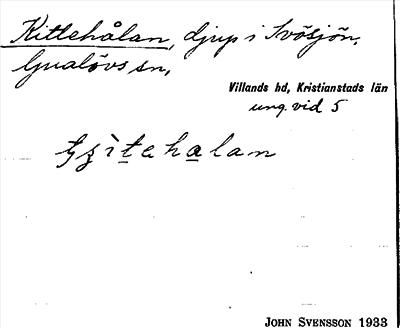 Kittehålan, djup i Ivösjön,
Gualövs sn,
Villands hd, Kristianstads län
ung. vid 5
tʒìtehalan
JOHN SVENSSON 1933